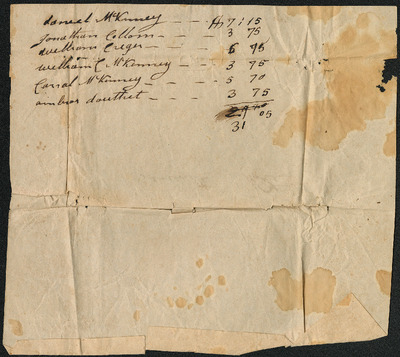 daniel McKinney - - - 7:15
Jonathan Collom - - - 3 75
William Creger - - - 6
William C McKenney - - 3 75
Carral McKinney - - - 5 70
ambros douthet - - - 3 75
05
31